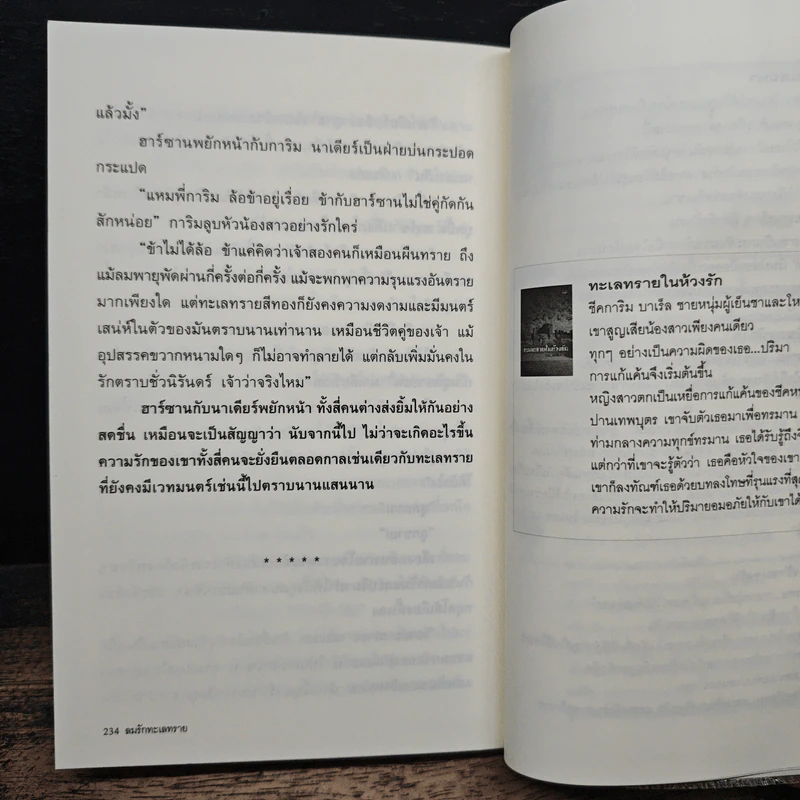 แล้วมั้ง”
ฮาร์ซานพยักหน้ากับการิม นาเดียร์เป็นฝ่ายบ่นกระปอด
กระแปด
“แหมพี่การิม ล้อข้าอยู่เรื่อย ข้ากับฮาร์ซานไม่ใช่คู่กัดกัน
สักหน่อย” การิมลูบหัวน้องสาวอย่างรักใคร่
“ข้าไม่ได้ล้อ ข้าแค่คิดว่าเจ้าสองคนก็เหมือนผืนทราย ถึง
แม้ลมพายุพัดผ่านกี่ครั้งต่อกี่ครั้ง แม้จะพกพาความรุนแรงอันตราย
มากเพียงใด แต่ทะเลทรายสีทองก็ยังคงความงดงามและมีมนตร์
เสน่ห์ในตัวของมันตราบนานเท่านาน เหมือนชีวิตคู่ของเจ้า แม้
อุปสรรคขวากหนามใดๆ ก็ไม่อาจทำลายได้ แต่กลับเพิ่มมั่นคงใน
รักตราบชั่วนิรันดร์ เจ้าว่าจริงไหม”
ฮาร์ซานกับนาเดียร์พยักหน้า ทั้งสี่คนต่างส่งยิ้มให้กันอย่าง
สดชื่น เหมือนจะเป็นสัญญาว่า นับจากนี้ไป ไม่ว่าจะเกิดอะไรขึ้น
ความรักของเขาทั้งสี่คนจะยั่งยืนตลอดกาลเช่นเดียวกับทะเลทราย
ที่ยังคงมีเวทมนตร์เช่นนี้ไปตราบนานแสนนาน
* * * * *
234 ลมรักทะเลทราย
ทะเลทรายในห้วงรัก
ชีคการิม บาเร็ล ชายหนุ่มผู้เย็นชาและ
เขาสูญเสียน้องสาวเพียงคนเดียว
ทุกๆ อย่างเป็นความผิดของเธอ...ปริมา
การแก้แค้นจึงเริ่มต้นขึ้น
หญิงสาวตกเป็นเหยื่อการแก้แค้นของชีค
ปานเทพบุตร เขาจับตัวเธอมาเพื่อทรมาน
ท่ามกลางความทุกข์ทรมาน เธอได้รับรู้ถึง
แต่กว่าที่เขาจะรู้ตัวว่า เธอคือหัวใจของเขา
เขาก็ลงทัณฑ์เธอด้วยบทลงโทษที่รุนแรงที่สุด
ความรักจะทำให้ปริมายอมอภัยให้กับเขาได้